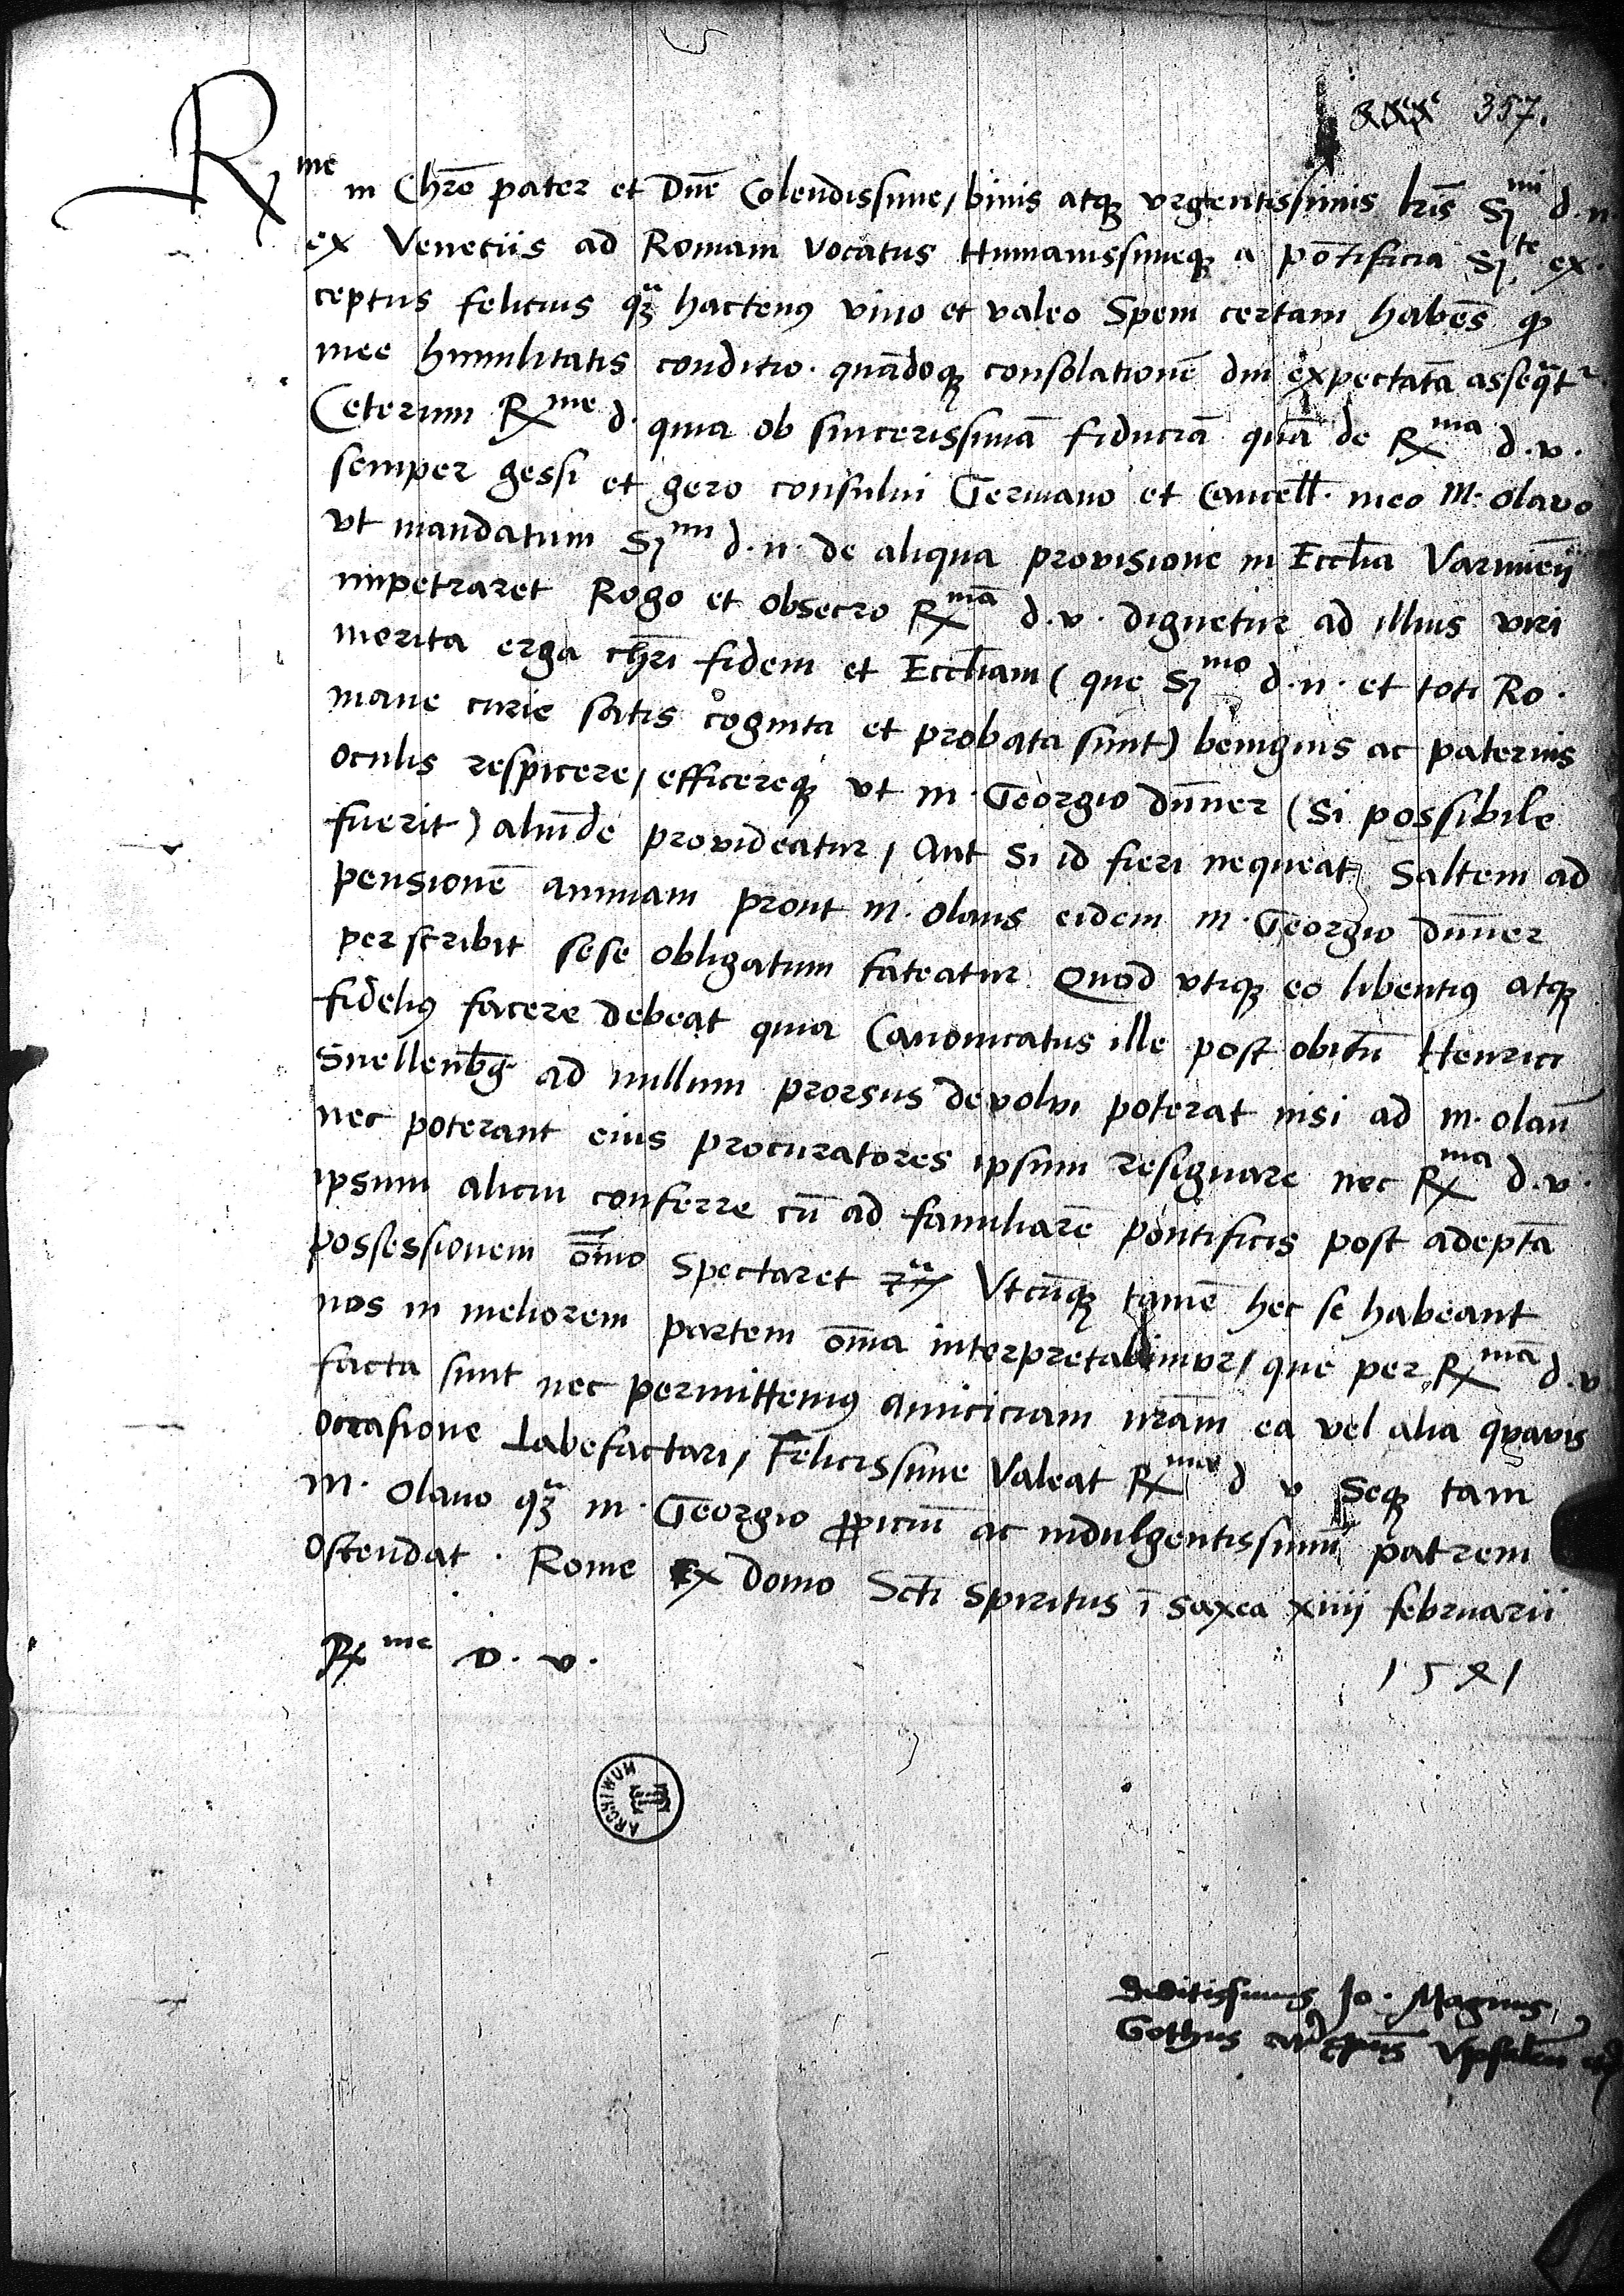 357.
R me in Chr̄o pater et Dn̄e Colendissime, binis atqꝫ vrgentissimis lr̄is S mi d. n
ex Venetiis ad Romam vocatus Humanissimeqꝫ a pōtificia S te ex.
ceptus felicius qꝫ hactenꝰ viuo et valeo Spem certam habēs ꝙ
mee humilitatis conditio. quādoqꝫ consolationē diu expectatā asseq̄t
Ceterum R me d. quia ob sincerissimā fiduciā quā de R ma d. v.
semper gessi et gero consului Germano et Cancell. meo M. Olavo
vt mandatum S mi d. n. de aliqua provisione in Eccl̄ia Varmieñ
impetraret Rogo et obsecro R mā d. v. dignetur ad illius viri
merita erga chr̄i fidem et Eccl̄iam (que S mo d. n. et toti Ro.
mane curie satis cognita et probata sunt) benignis ac paternis
oculis respicere, efficereqꝫ vt m. Georgio dūner (Si possibile
fuerit) aliūde provideatur, Aut si id fieri nequeat, Saltem ad
pensionē annuam prout m. Olaus eidem m. Georgio dūner
perscribit sese obligatum fateatur Quod vtiqꝫ eo libentiꝰ atqꝫ
fideliꝰ facere debeat quia Canonicatus ille post obitū Henrici
Snellenb̄g ad nullum prorsus devolvi poterat nisi ad m. olaū
nec poterant eius procuratores ipsum resignare nec R ma d. v.
ipsum alicui conferre cū ad familiarē pontificis post adeptā
possessionem ōīno Spectaret Vtcūqꝫ tamē hec se habeant
nos in meliorem partem ōīa interpretabimur, que per R mā d. v
facta sunt nec permittemꝰ amiciciam nr̄am ea vel alia quavis
occasione Labefactari, Felicissime Valeat R ma d v Seqꝫ tam
m. Olauo qꝫ m. Georgio ꝓpiciū ac indulgentissimū patrem
Ostendat. Rome Ex domo Sct̄i Spiritus ī Saxea xiiij februarii
R me D. v. 1541
ARCHIWUM
deditissimus Jo. Magnus
Gothus Vpsaleñ